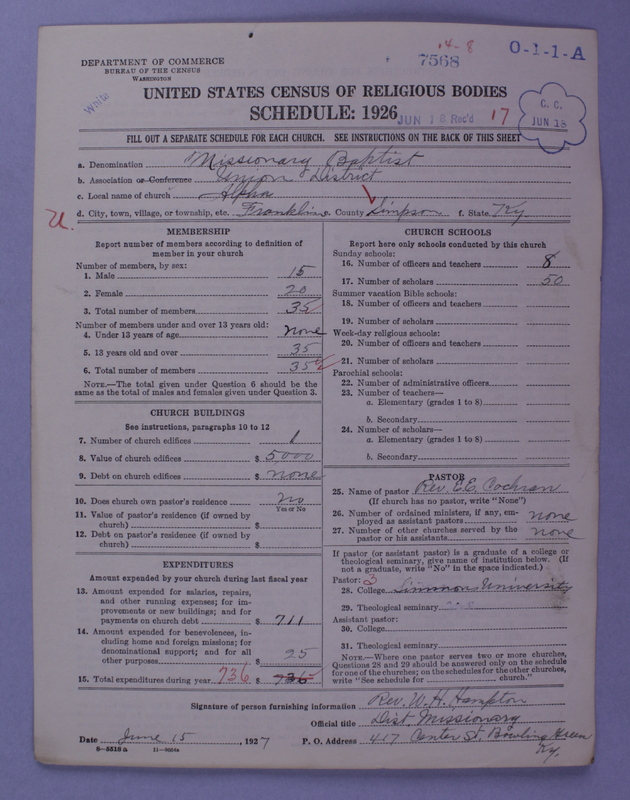 14-8
7568
O-1-1-A
DEPARTMENT OF COMMERCE
BUREAU OF THE CENSUS
WASHINGTON
White
UNITED STATES CENSUS OF RELIGIOUS BODIES
SCHEDULE: 1926
JUN 16 Rec'd
17
C. C.
JUN 18
FILL OUT A SEPARATE SCHEDULE FOR EACH CHURCH. SEE INSTRUCTIONS ON THE BACK OF THIS SHEET
a. Denomination Missionary Baptist
b. Association or Conference Union District
c. Local name of church Alpha
U.
d. City, town, village, or township, etc. Franklin e. County Simpson f. State Ky.
MEMBERSHIP
Report number of members according to definition of
member in your church
Number of members, by sex:
1. Male 15
2. Female 20
3. Total number of members 35
Number of members under and over 13 years old:
4. Under 13 years of age none
5. 13 years old and over 35
6. Total number of members 35
NOTE.—The total given under Question 6 should be the
same as the total of males and females given under Question 3.
CHURCH BUILDINGS
See instructions, paragraphs 10 to 12
7. Number of church edifices 1
8. Value of church edifices $ 5000
9. Debt on church edifices $ none
10. Does church own pastor's residence no
Yes or No
11. Value of pastor's residence (if owned by
church) $
12. Debt on pastor's residence (if owned by
church) $
EXPENDITURES
Amount expended by your church during last fiscal year
13. Amount expended for salaries, repairs,
and other running expenses; for im-
provements or new buildings; and for
payments on church debt $ 711
14. Amount expended for benevolences, in-
cluding home and foreign missions; for
denominational support; and for all
other purposes $ 25
15. Total expenditures during year 736 $ 736
CHURCH SCHOOLS
Report here only schools conducted by this church
Sunday schools:
16. Number of officers and teachers 8
17. Number of scholars 50
Summer vacation Bible schools:
18. Number of officers and teachers
19. Number of scholars
Week-day religious schools:
20. Number of officers and teachers
21. Number of scholars
Parochial schools:
22. Number of administrative officers
23. Number of teachers—
a. Elementary (grades 1 to 8)
b. Secondary
24. Number of scholars—
a. Elementary (grades 1 to 8)
b. Secondary
PASTOR
25. Name of pastor Rev. E.E. Cochran
(If church has no pastor, write "None")
26. Number of ordained ministers, if any, em-
ployed as assistant pastors none
27. Number of other churches served by the
pastor or his assistants none
If pastor (or assistant pastor) is a graduate of a college or
theological seminary, give name of institution below. (If
not a graduate, write "No" in the space indicated.)
Pastor: 3
28. College Simmon University
29. Theological seminary
Assistant pastor:
30. College
31. Theological seminary
NOTE.—Where one pastor serves two or more churches,
Questions 28 and 29 should be answered only on the schedule
for one of the churches; on the schedules for the other churches,
write "See schedule for church."
Signature of person furnishing information Rev. W. H. Hampton
Official title Dist. Missionary
Date June 15, 1927 P. O. Address 417 Center St. Bowling Green
Ky.